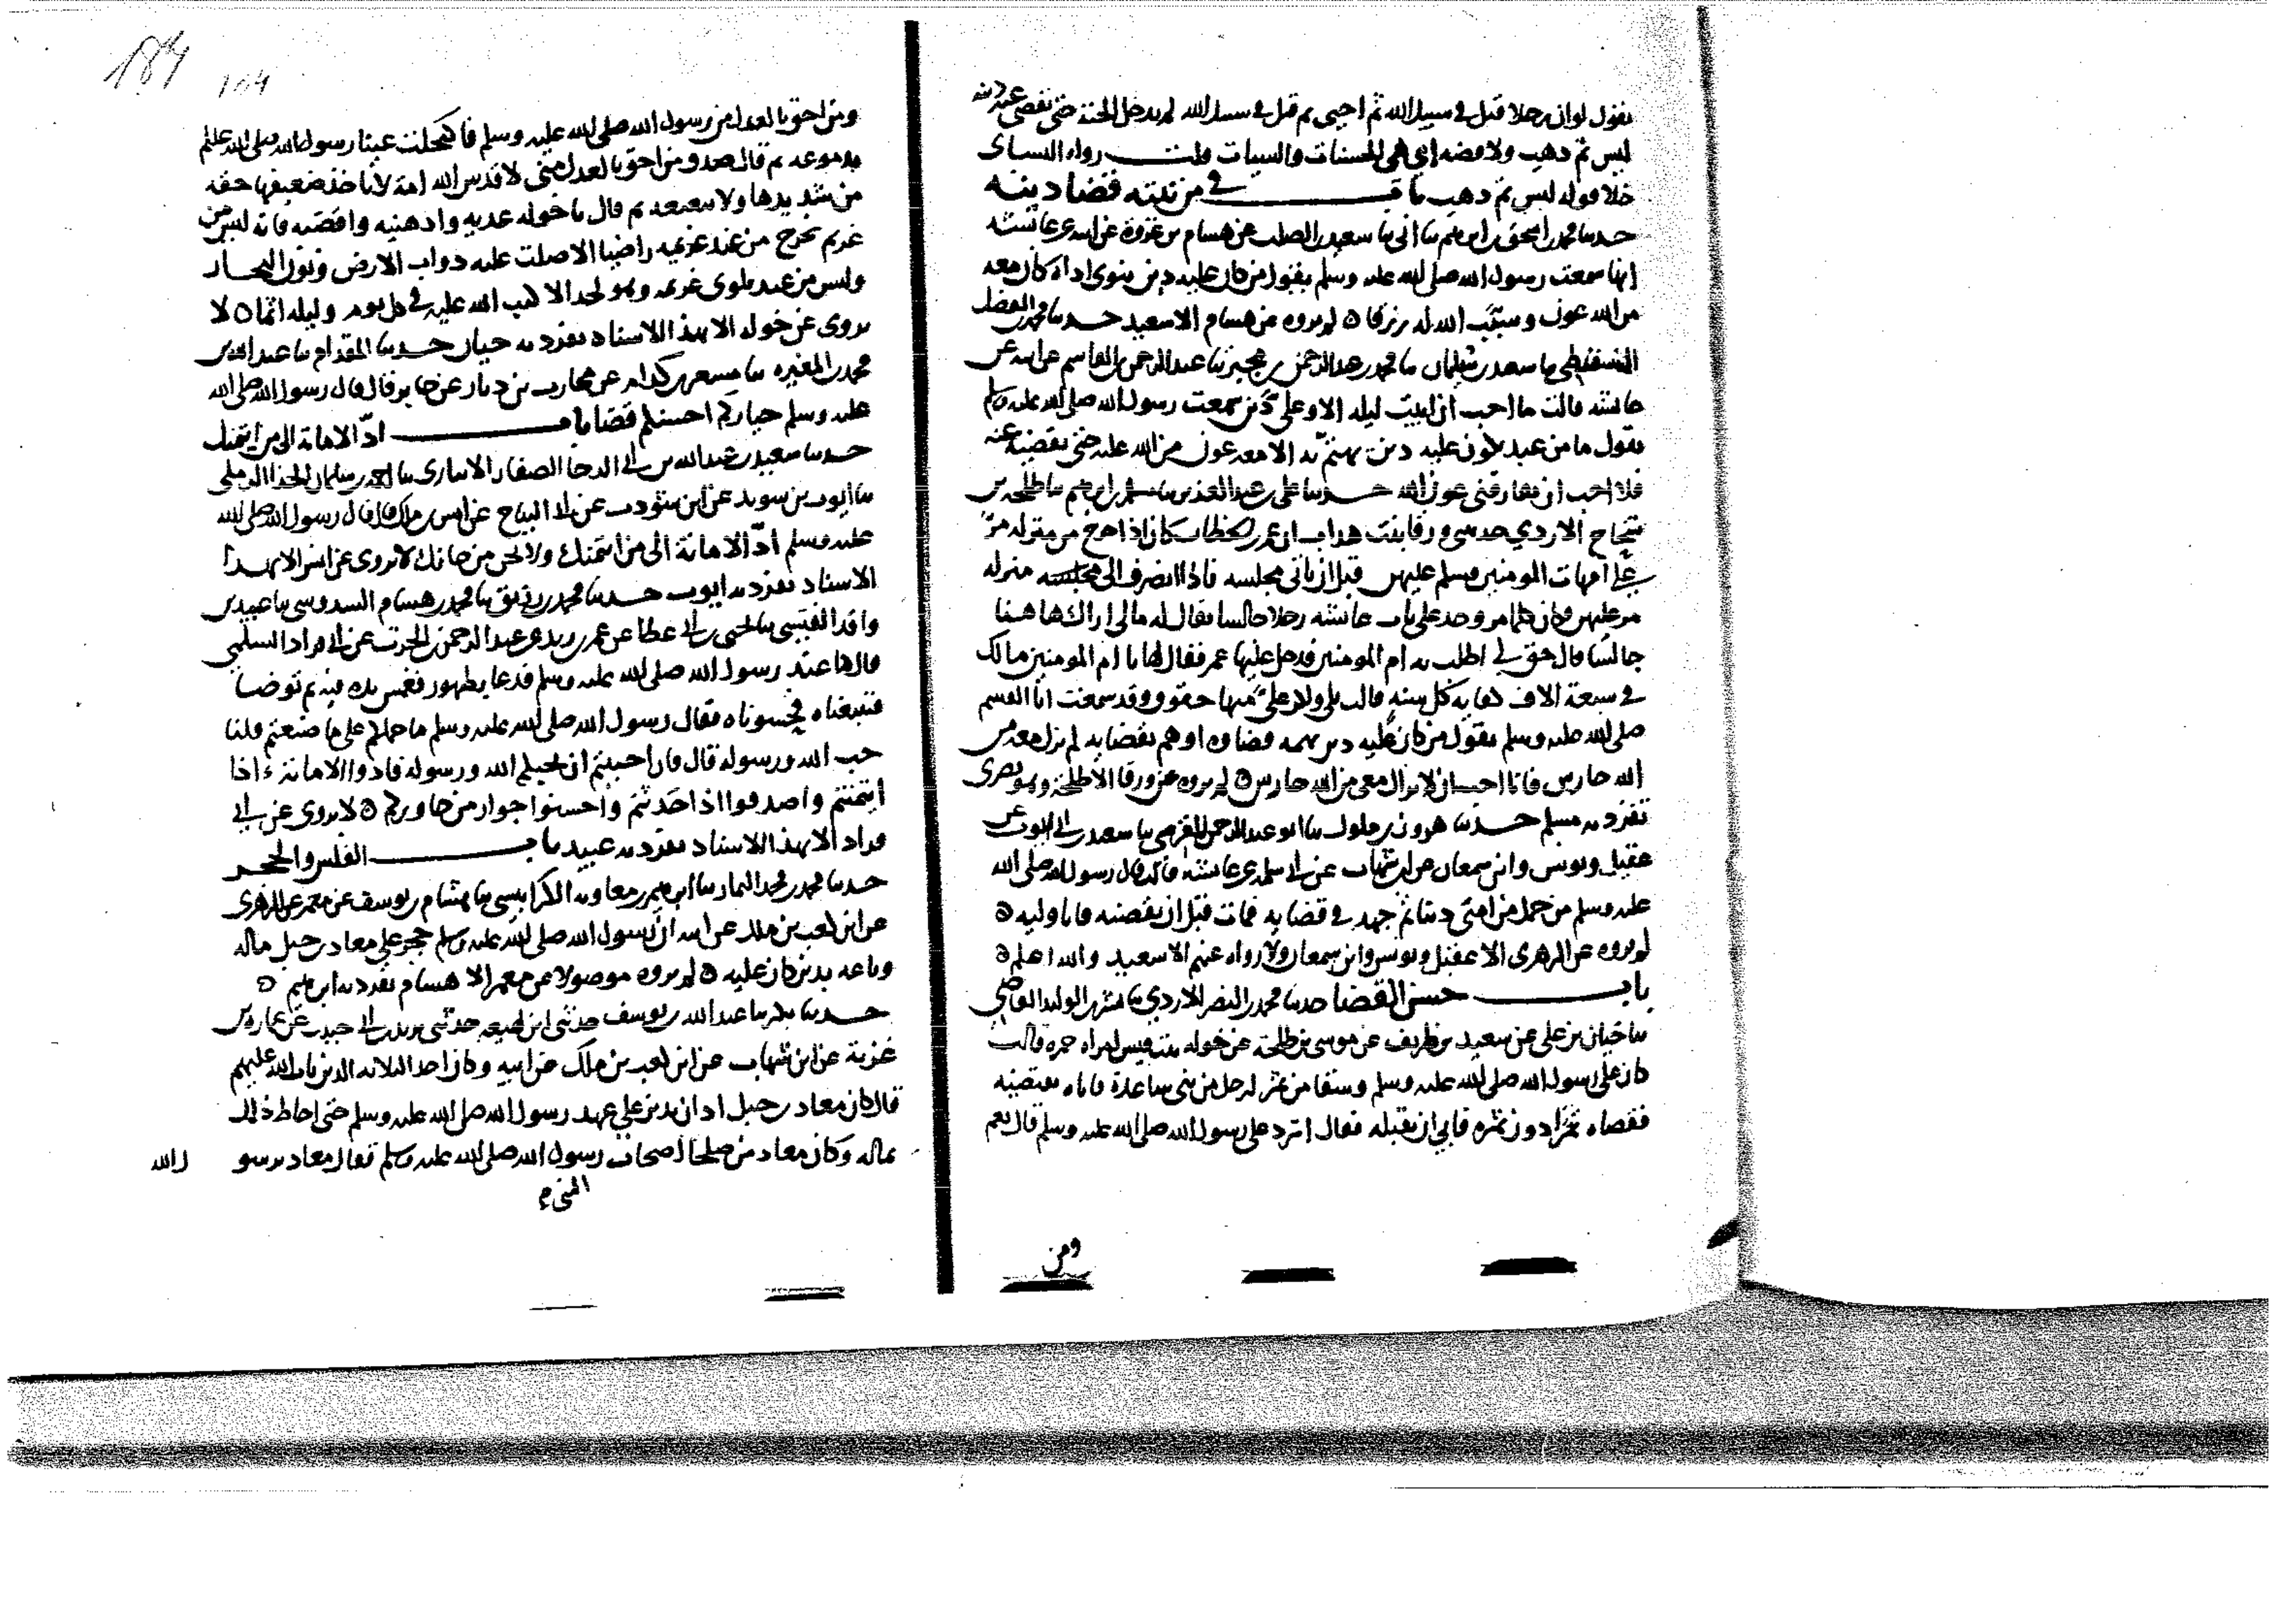 يقول لو ان رجلا قتل في سبيل الله ثم احيي ثم قتل في سبيل الله لم يدخل الجنة حتى يقضى عنه دينه
ليس ثم ذهب ولا فضه انما هي الحسنات والسيات قلت رواه النساي
خلا قوله ليس ثم ذهب باب في من نيته قضا دينه
حدثنا محمد بن اسحق بن ابرهيم ثنا ابي ثنا سعيد بن الصلت عن هشام بن عروة عن ابيه عن عائشة
انها سمعت رسول الله صلى الله عليه وسلم يقول من كان عليه دين ينوي اداه كان معه
من الله عون وسبب الله له رزقا ه لم يروه عن هشام الا سعيد حدثنا محمد بن الفضل
السقطي ثنا سعيد بن سليمان ثنا محمد بن عبد الرحمن بن مجبر ثنا عبد الرحمن بن القاسم عن ابيه عن
عائشه قالت ما احب ان ابيت ليله الا وعلي دين سمعت رسول الله صلى الله عليه وسلم
يقول ما من عبد يكون عليه دين يهتم به الا معه عون من الله عليه حتى يقضيه عنه
فلا احب ان يفارقني عون الله حدثنا علي بن عبد العزيز ثنا مسلم بن ابرهيم ثنا طلحه بن
شجاح الازدي حدثتني ورقا بنت هداب ان عمر بن الخطاب كان اذا خرج من منزله مر
على امهات المومنين فسلم عليهن قبل ان ياتي مجلسه فاذا انصرف الى منزله
مر عليهن وكان كلما مر وجد على باب عائشه رجلا جالسا فقال له مالي اراك هاهنا
جالسا قال حق لي اطلب به ام المومنين فدخل عليها عمر فقال لها يا ام المومنين مالك
في سبعة الاف كفايه كل سنه قالت بلى ولكن علي فيها حقوق وقد سمعت ابا القسم
صلى الله عليه وسلم يقول من كان عليه دين يهمه قضاوه او هم بقضايه لم يزل معه من
الله حارس فانا احب ان لا يزال معي من الله حارس ه لم يروه عن ورقا الا طلحة وهو بصري
تفرد به مسلم حدثنا هرون بن ملول ثنا ابو عبد الرحمن المقرئ ثنا سعيد بن ابي ايوب عن
عقيل ويونس وابن سمعان عن ابن شهاب عن ابي سلمه عن عائشة قالت قال رسول الله صلى الله
عليه وسلم من حمل من امتي دينا ثم جهد في قضايه فمات قبل ان يقضيه فانا وليه ه
لم يروه عن الزهري الا عقيل ويونس وابن سمعان ولا رواه عنهم الا سعيد والله اعلم ه
باب حسن القضا حدثنا محمد بن النضر الازدي ثنا بشر بن الوليد القاضي
ثنا حبان بن علي عن سعيد بن طريف عن موسى بن طلحة عن خوله بنت قيس امراه حمزه قالت
كان على رسول الله صلى الله عليه وسلم وسقا من تمر لرجل من بني ساعدة فاتاه يقتضيه
فقضاه تمرا دون تمره فابى ان يقبله فقال اترد على رسول الله صلى الله عليه وسلم قال نعم
ومن
184
ومن احق بالعدل من رسول الله صلى الله عليه وسلم فاكتحلت عينا رسول الله صلى الله عليه وسلم
بدموعه ثم قال صدق ومن احق بالعدل مني لا قدس الله امة لا ياخذ ضعيفها حقه
من شديدها ولا يتعتعه ثم قال يا خوله عديه وادهنيه واقضيه فانه ليس من
غريم يخرج من عند غريمه راضيا الا صلت عليه دواب الارض ونون البحار
وليس من عبد يلوي غريمه وهو يجد الا كتب الله عليه في كل يوم وليله اثما ه لا
يروى عن خوله الا بهذا الاسناد تفرد به حبان حدثنا المقدام ثنا عبد الله بن
محمد بن المغيره ثنا مسعر بن كدام عن محارب بن دثار عن جابر قال قال رسول الله صلى الله
عليه وسلم خياركم احسنكم قضا باب ادّ الامانة الى من ايتمنك
حدثنا سعيد بن عبد الله بن ابي الدحا الصفار الانباري ثنا بن سليمان الحذا الرملي
ثنا ايوب بن سويد عن ابن شوذب عن ابي التياح عن انس بن ملك قال قال رسول الله صلى الله
عليه وسلم ادّ الامانة الى من ائتمنك ولا تخن من خانك لا يروى عن انس الا بهذا
الاسناد تفرد به ايوب حدثنا محمد بن رزيق ثنا محمد بن هشام السدوسي ثنا عبيد بن
واقد القيسي ثنا يحيى بن ابي عطا عن عمير بن يزيد عن عبد الرحمن بن الحرث عن ابي قراد السلمي
قال كنا عند رسول الله صلى الله عليه وسلم فدعا بطهور فغمس يده فيه ثم توضا
فتتبعناه فحسوناه فقال رسول الله صلى الله عليه وسلم ما حملكم على ما صنعتم قلنا
حب الله ورسوله قال فان احببتم ان يحبكم الله ورسوله فادوا الامانة اذا
ايتمنتم واصدقوا اذا حدثتم واحسنوا جوار من جاوركم ه لا يروى عن ابي
قراد الا بهذا الاسناد تفرد به عبيد باب الفلس والحجر
حدثنا محمد بن محمد التمار ثنا ابرهيم بن معاويه الكرابيسي ثنا هشام بن يوسف عن معمر عن الزهري
عن ابن كعب بن ملك عن ابيه ان رسول الله صلى الله عليه وسلم حجر على معاد بن جبل ماله
وباعه بدين كان عليه ه لم يروه موصولا عن معمر الا هشام تفرد به ابرهيم ه
حدثنا بكر ثنا عبد الله بن يوسف حدثني ابن لهيعه حدثني يزيد بن ابي حبيب عن عمارة بن
غزية عن ابن شهاب عن ابن كعب بن ملك عن ابيه وكان احد الثلاثه الذين تاب الله عليهم
قال كان معاد بن جبل ادان بدين على عهد رسول الله صلى الله عليه وسلم حتى احاط ذلك
بماله وكان معاد من صلحا اصحاب رسول الله صلى الله عليه وسلم فقال معاد يرسو ل الله